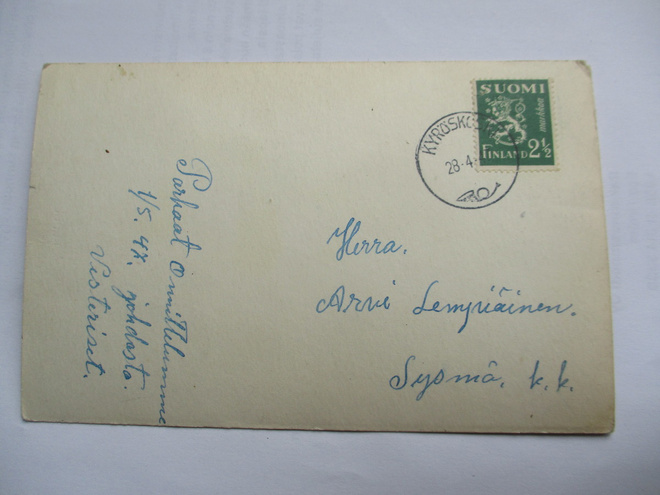 SUOMI
markkaa
FINLAND 2½
KYRÖSKO
28-4
Parhaat Onnittelumme
1/5. 47. johdosta.
Visteriset.
Herra.
Arvi Lempiäinen.
Sysmä. k.k.